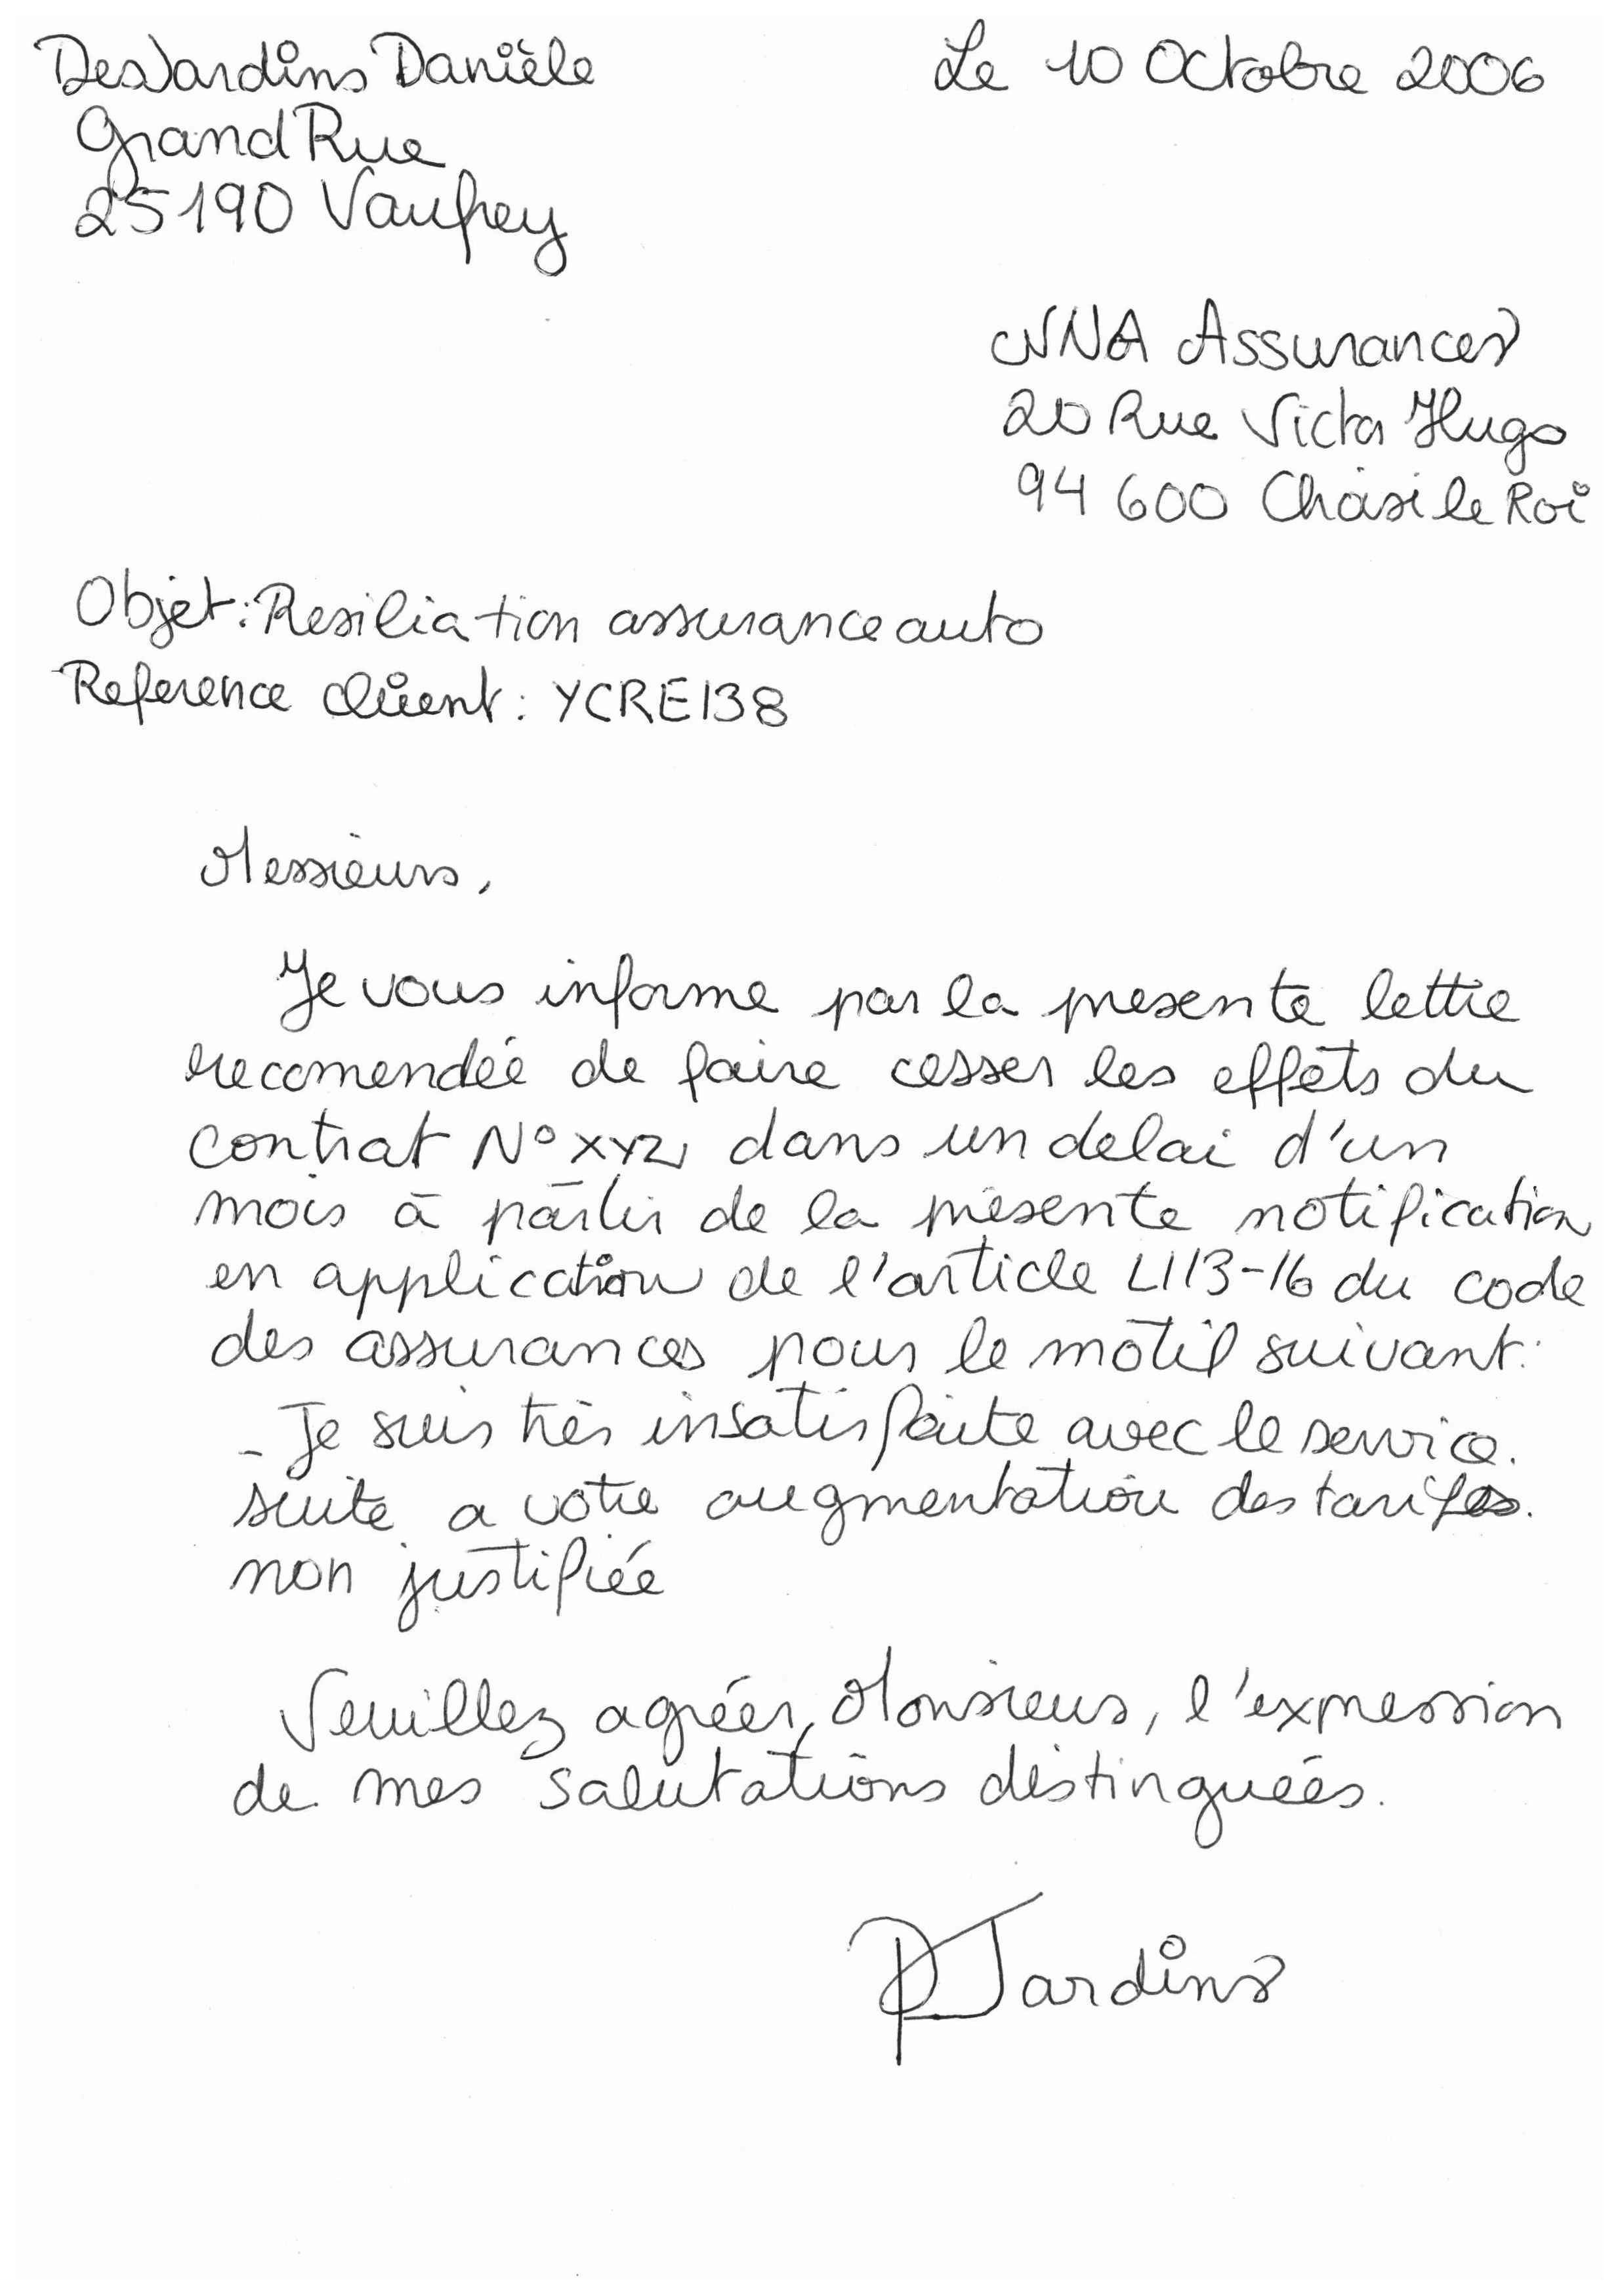 DesJardins Danièle
Le 10 Octobre 2006
Grand Rue
25190 Vaufrey
NNA Assurances
20 Rue Victor Hugo
94 600 Choisi le Roi
Objet: Resiliation assurance auto
Reference client: YCRE138
Messieurs,
Je vous informe par la presente lettre
recomendée de faire cesser les effets du
contrat N° XYZ, dans un delai d'un
mois à partir de la présente notification
en application de l'article L113-16 du code
des assurances pour le motif suivant:
- Je suis très insatisfaite avec le service.
suite a votre augmentation des tarifes.
non justifiée
Veuillez agréer, Monsieur, l'expression
de mes salutations distinguées.
D Jardins